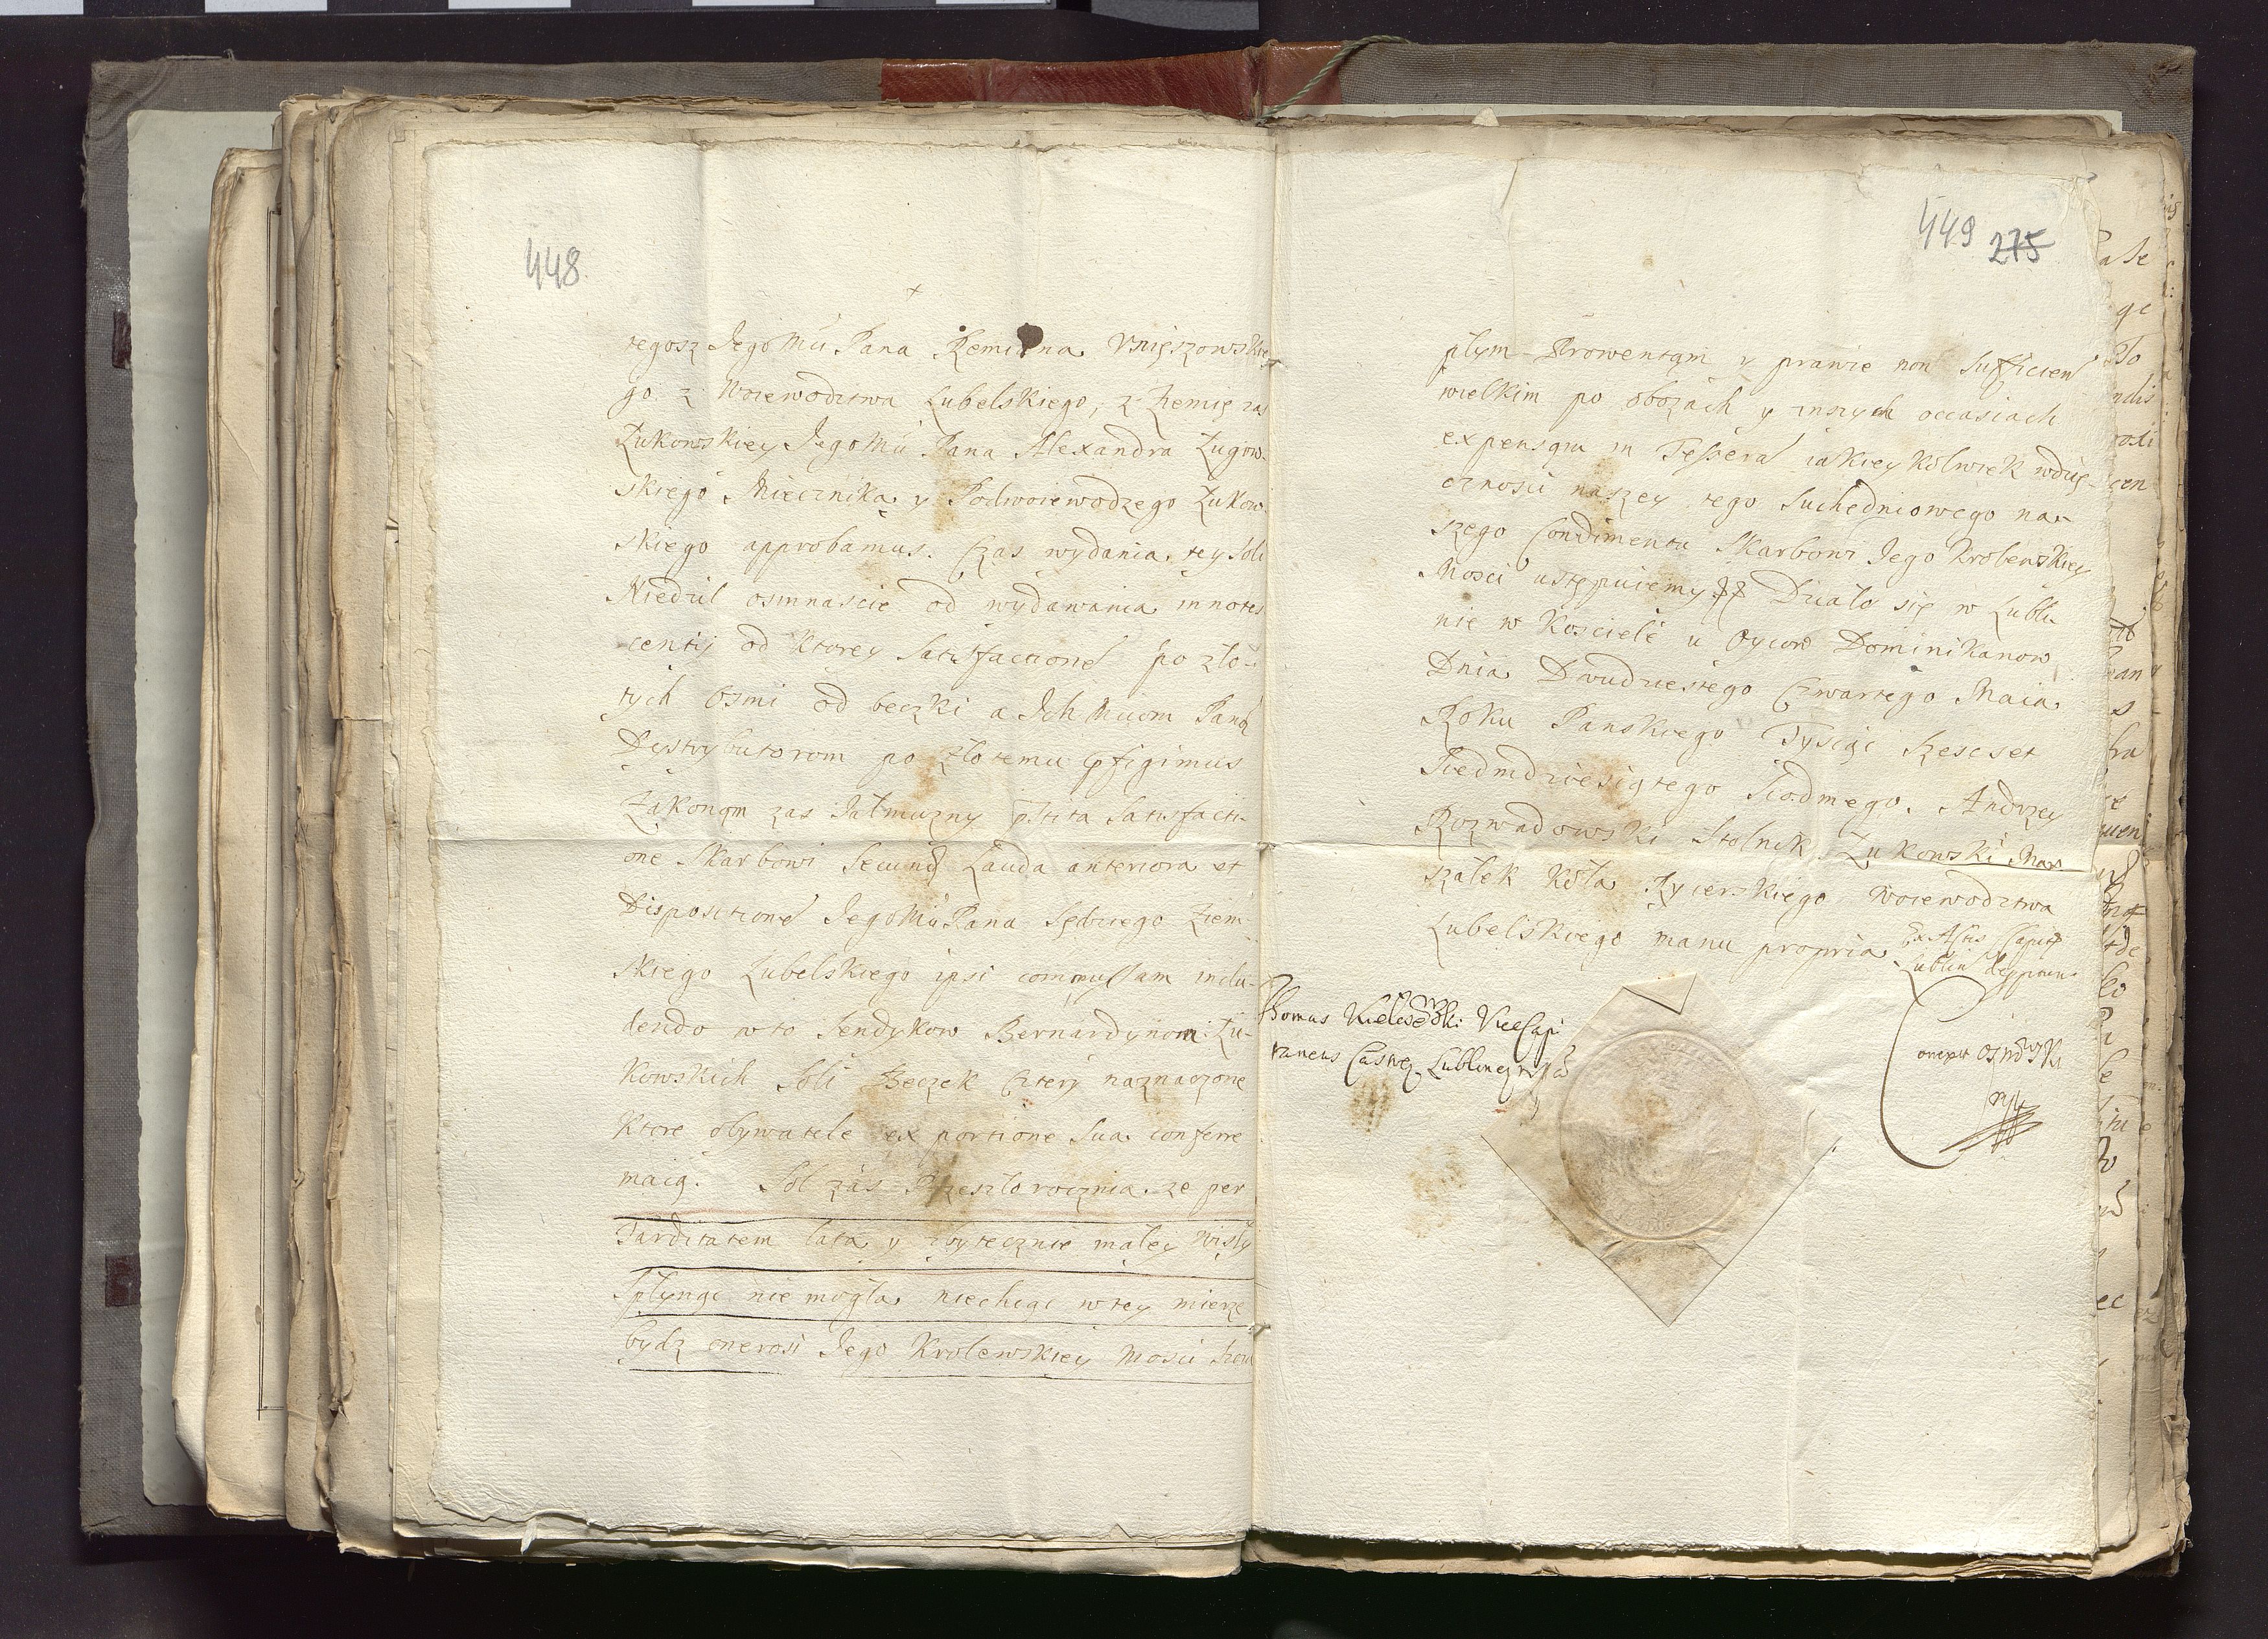 448
tegosz Jego Mći Pana Remiena Vnięszowskie
go z Woiewodztwa Lubelskiego, z Ziemię zas
Łukowskiey Jego Mći Pana Alexandra Ługow-
skiego Miecznika y Podwoiewodzego Łukow-
skiego approbamus. Czas wydania tey Soli
Niedzil osmnascie od wydawania innotes
centij od ktorey Satisfactioné po zło-
tych Osmi od beczki a Ich Mciom Panō
Dystrybutorom po złotemu pfigimus
Zakonom zas Jałmuzny pstita Satisfacti-
one Skarbowi Secund Lauda anteriora et
Dispositioné Jego Mći Pana Sędziego Ziem-
skiego Lubelskiego ipsi commissam inclu-
dendo w to Sendykow Bernardynom Łu-
kowskich Soli Beczek Cztery naznaczone
ktore obywatele ex portione sua conferre
maią. Sol zas Przeszłorocznia ze per
Tarditatem lata y zbytecznie małey Wisły
Spłynąc nie mogła niechcąc w tey mierze
bydz onerosi Jego Krolewskiey Mosci
449 275
płym Prowentom y prawie non Sufficien
wielkim po obozach y inszych occasiach
expensom in Tesseraˉ iakiey kolwiek wdzię-
cznosci naszey tego Suchedniowego na-
szego Condimentu Skarbowi Jego Krolewskiey
Mosci ustępuiemy Działo się w Lubli-
nie w Kosciele u Oycow Dominikanow
Dnia Dwudziestego Czwartego Maia
Roku Panskiego Tysiąc Szescset
Siedmdziesiątego Siodmego. Andrzey
Rozwadowski Stolnik Łukowski Mar
szałek Koła Rycerskiego Woiewodztwa
Lubelskiego manu propria
Ex Actis Capit
Lublin
Thomas Vicecapi
taneus Castreˉ Lublineˉ mp